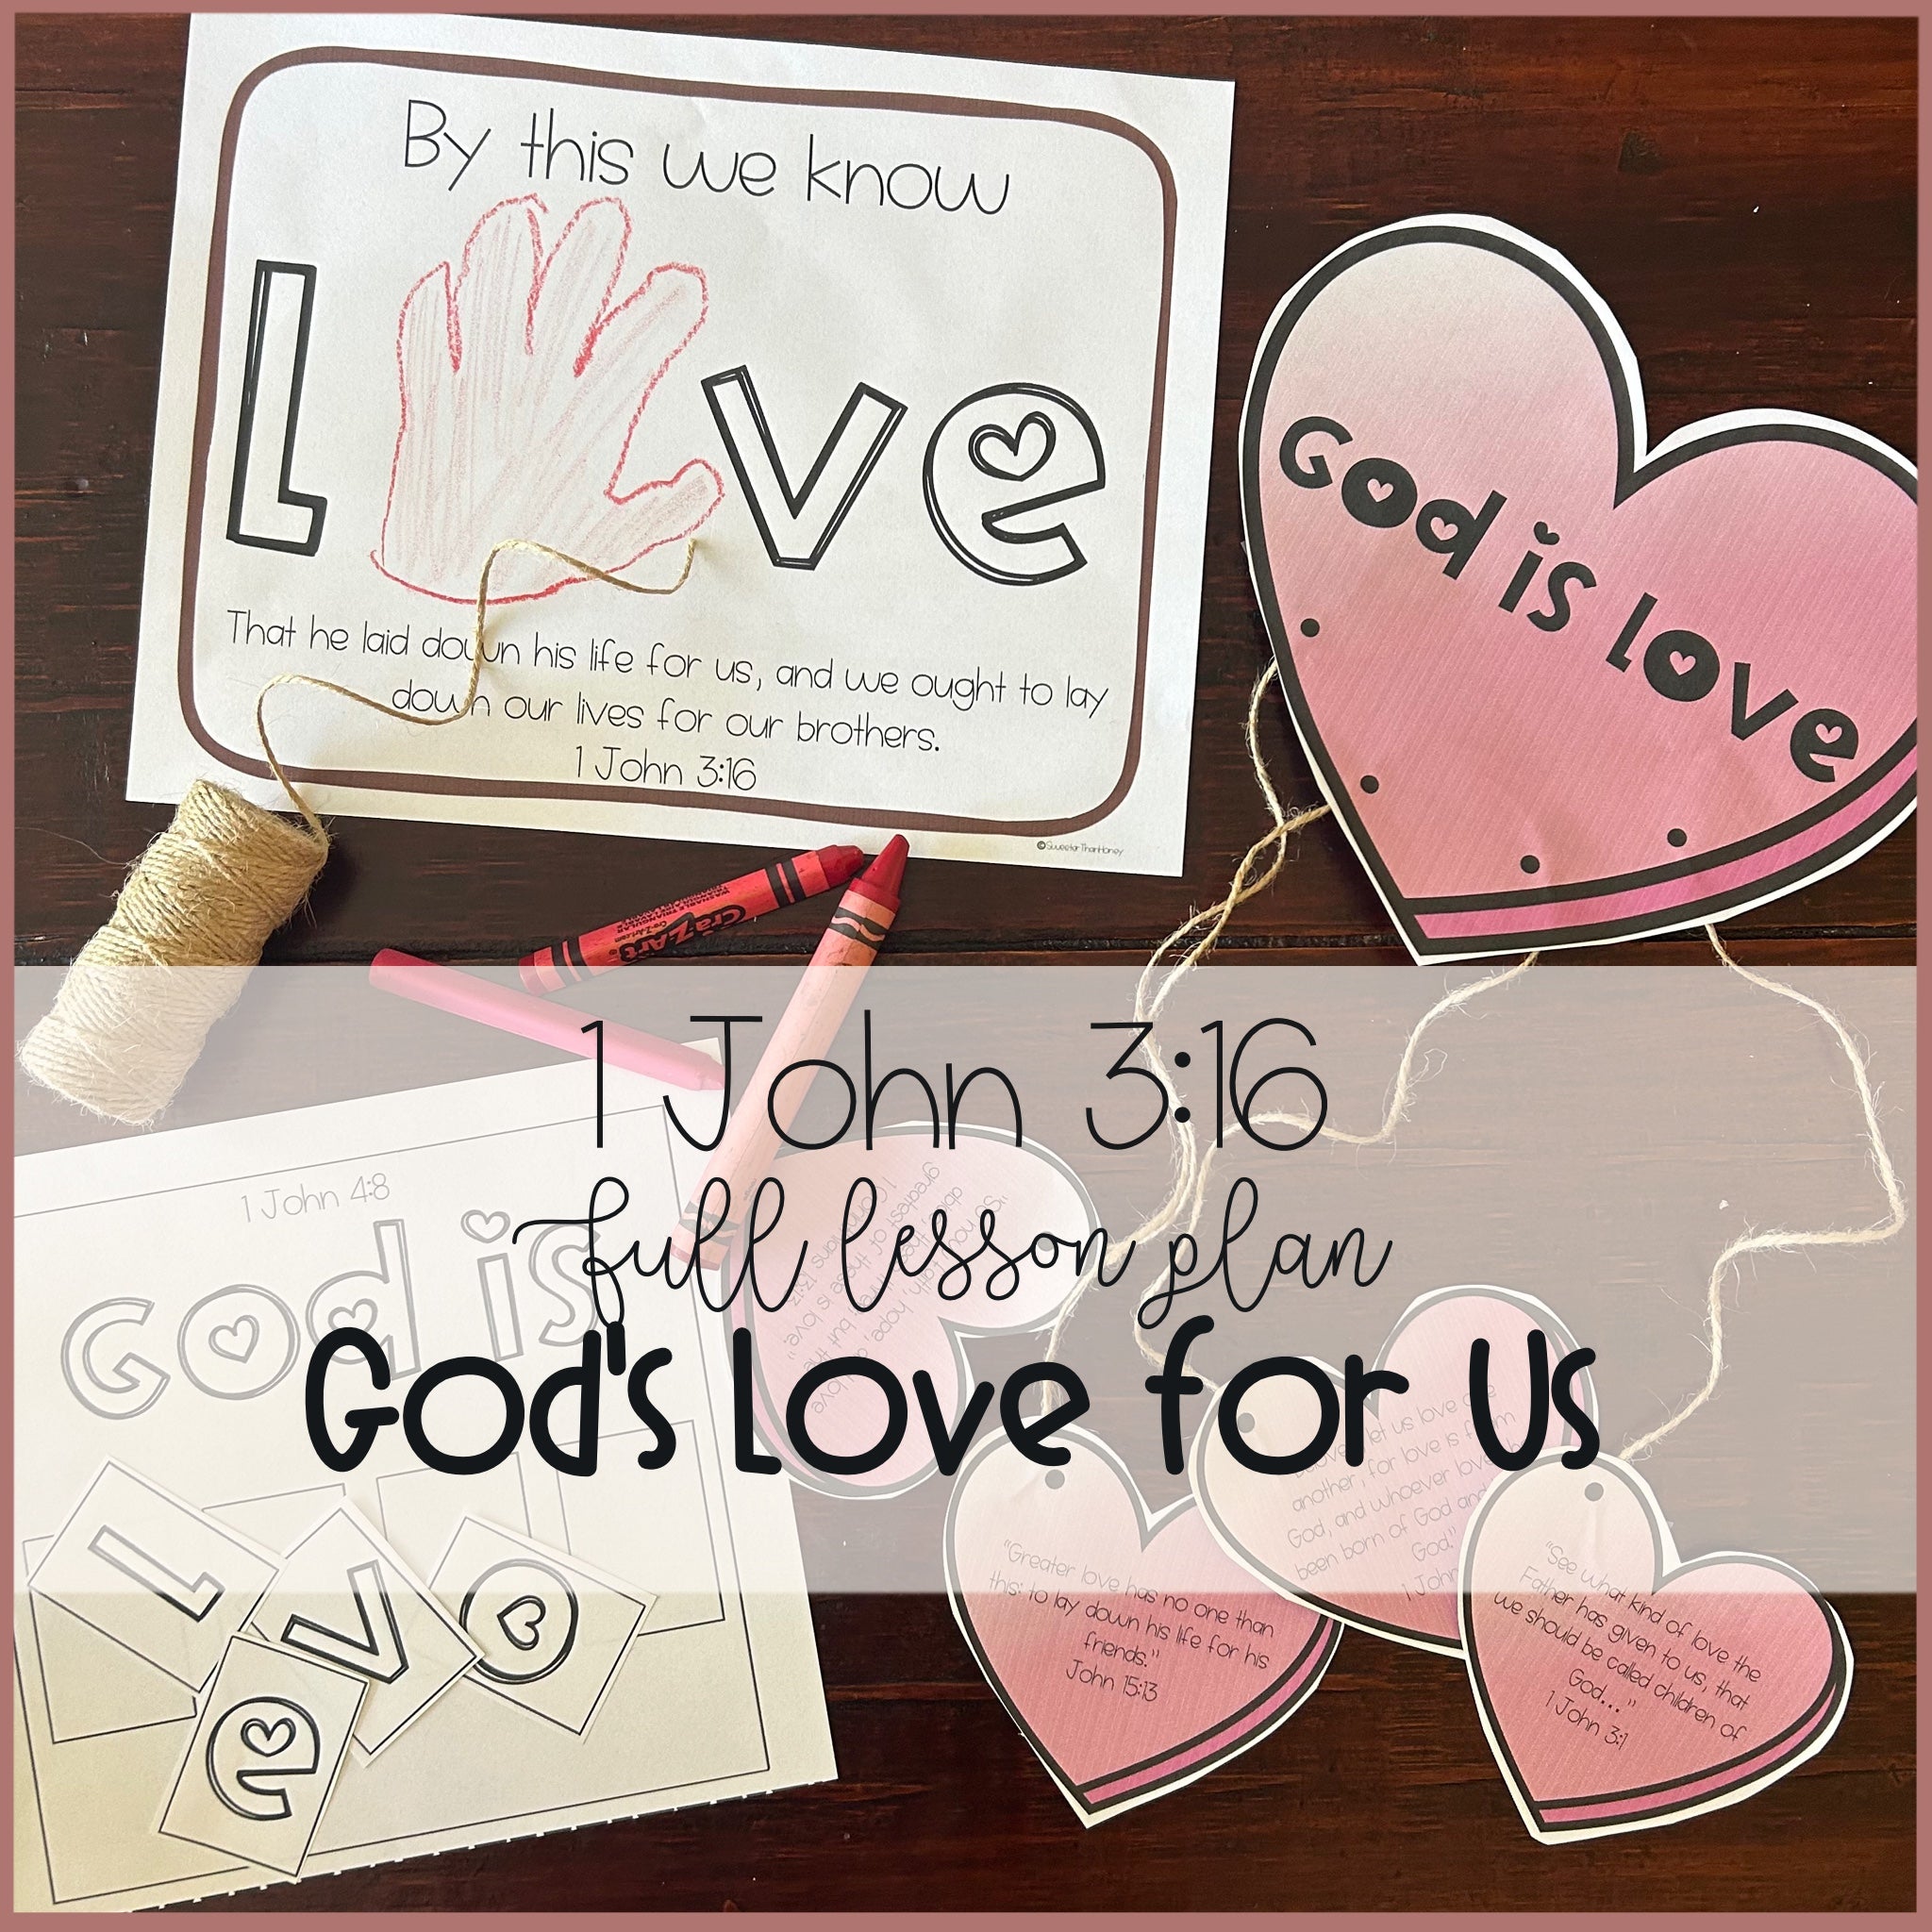 By this we know
L ve
That he laid down his life for us, and we ought to lay
down our lives for our brothers.
1 John 3:16
©SweeterThanHoney
God is love
CraZArt
1 John 3:16
full lesson plan
God's Love for Us
1 John 4:8
God is
L
v
o
e
greatest of these is love."
"Greater love has no one than
this: to lay down his life for his
friends."
John 15:13
let us love one
another, for love is from
God, and whoever loves
been born of God and
God."
1 John
"See what kind of love the
Father has given to us, that
we should be called children of
God..."
1 John 3:1